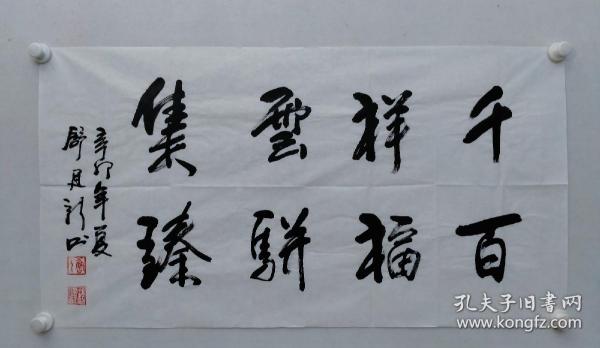 千百
祥福
雲駢
集臻
辛卯年夏
舒月新书
孔夫子旧书网
www.kongfz.com